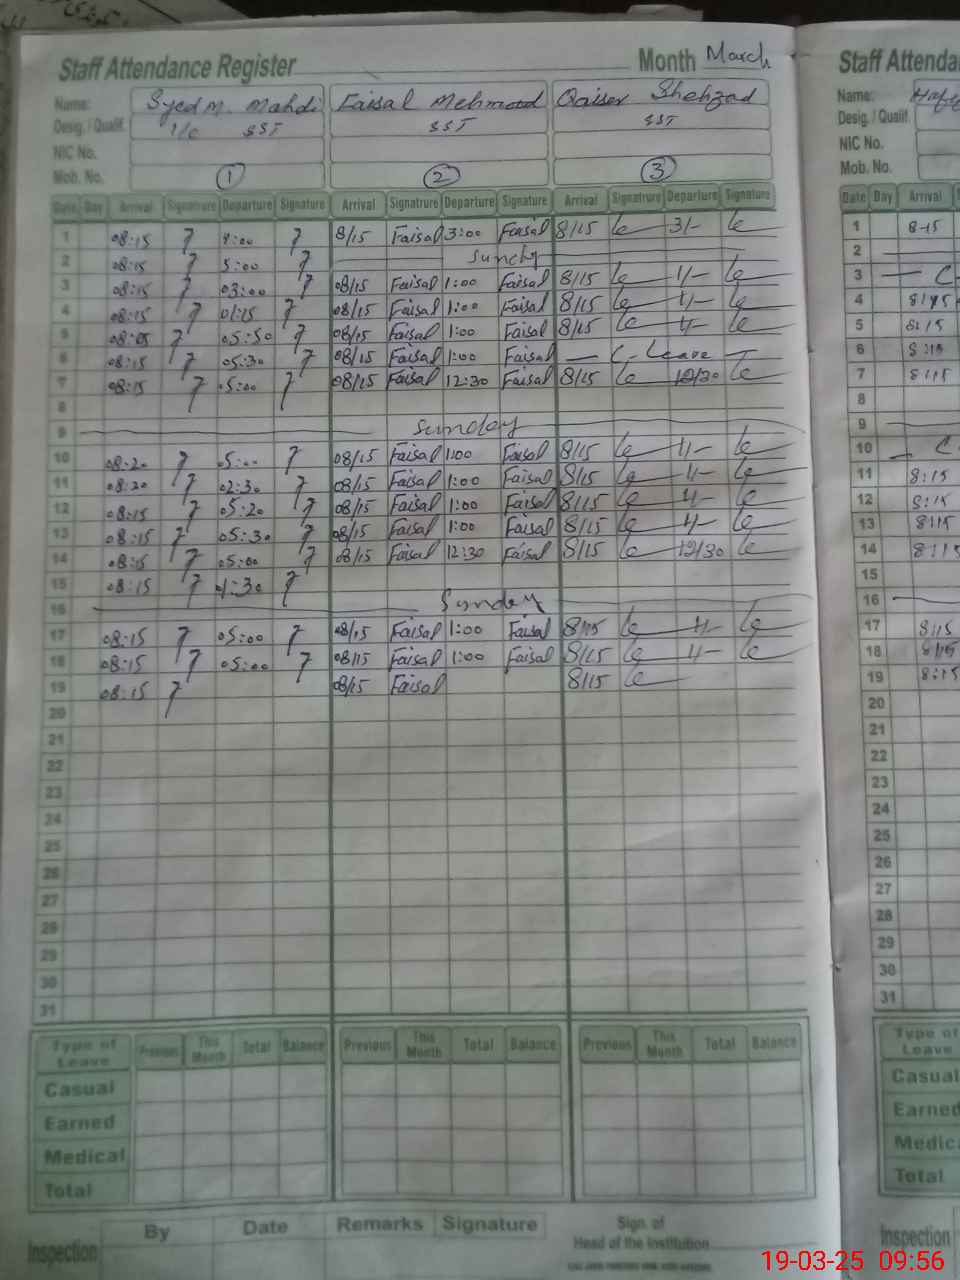 Staff Attendance Register Month March Staff Attenda
Name: Syed M. Mahdi Faisal Mehmood Qaiser Shehzad Name:
Desig. / Qualif. I/C SST SST SST Desig. / Qualif.
NIC No. NIC No.
Mob. No. 1 2 3 Mob. No.
Date Day Arrival Signatrure Departure Signature Arrival Signatrure Departure Signature Arrival Signatrure Departure Signature Date Day Arrival
1 08:15 8/15 Faisal 3:00 Faisal 8/15 3/- 1 8-15
2 08:15 5:00 Sunday 2
3 08:15 03:00 08/15 Faisal 1:00 Faisal 8/15 1/- 3 C
4 08:15 01:15 08/15 Faisal 1:00 Faisal 8/15 1/- 4 8/15
5 05:50 08/15 Faisal 1:00 Faisal 8/15 1/- 5 8:15
6 08:15 05:30 08/15 Faisal 1:00 Faisal — C-Leave — 6 8:15
7 08:15 05:00 08/15 Faisal 12:30 Faisal 8/15 12/30 7 8:15
8 8
9 Sunday 9
10 08:20 05:00 08/15 Faisal 1:00 Faisal 8/15 1/- 10 C
11 08:20 02:30 08/15 Faisal 1:00 Faisal 8/15 1/- 11 8:15
12 08:15 05:20 08/15 Faisal 1:00 Faisal 8/15 1/- 12 8:15
13 08:15 05:30 08/15 Faisal 1:00 Faisal 8/15 1/- 13 8:15
14 08:15 05:00 08/15 Faisal 12:30 Faisal 8/15 12/30 14 8:15
15 08:15 15
16 Sunday 16
17 08:15 05:00 08/15 Faisal 1:00 Faisal 8/15 1/- 17 8:15
18 08:15 05:00 08/15 Faisal 1:00 Faisal 8/15 1/- 18 8:15
19 08:15 08/15 Faisal 8/15 19 8:15
20 20
21 21
22 22
23 23
24 24
25 25
26 26
27 27
28 28
29 29
30 30
31 31
Type of Leave Previous This Month Total Balance Previous This Month Total Balance Previous This Month Total Balance Type of Leave
Casual Casual
Earned Earned
Medical Medic
Total Total
Inspection By Date Remarks Signature Sign. of Head of the Institution Inspection
19-03-25 09:56